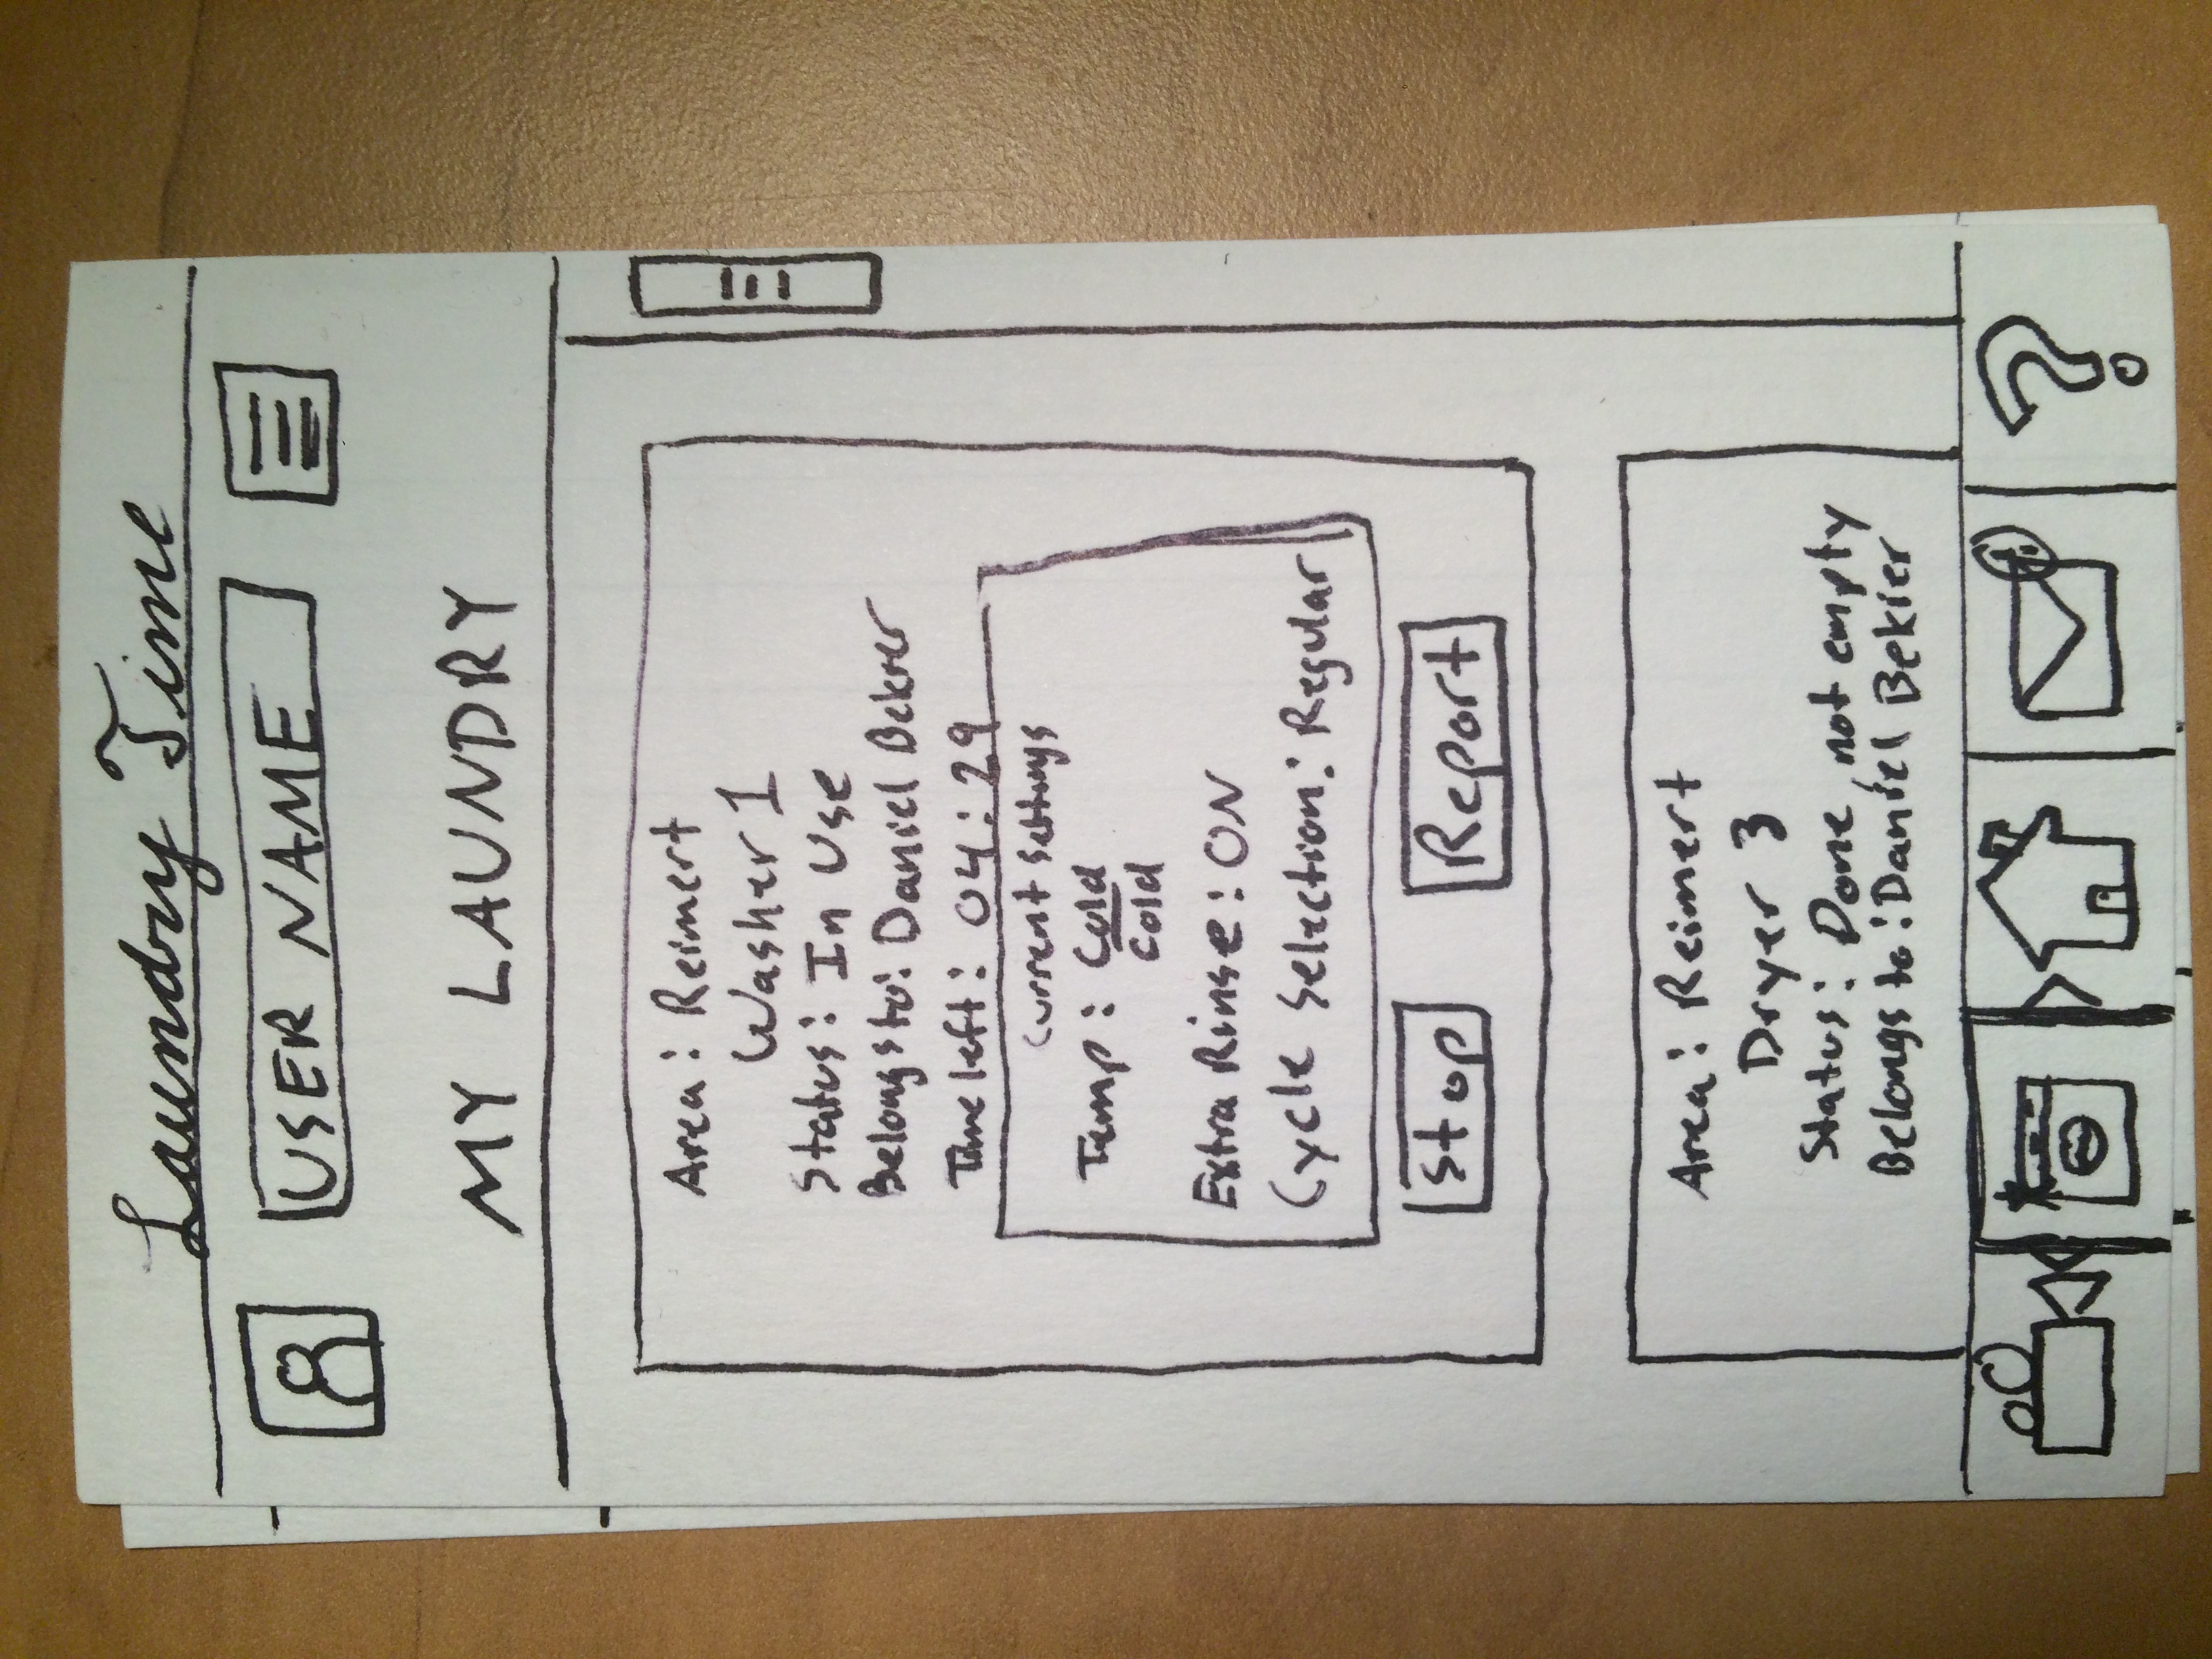 Laundry Time
USER NAME
MY LAUNDRY
Area: Reimert
Washer 1
Status: In Use
Belongs to: Daniel Bekier
Time left: 04:29
Current Settings
Temp: Cold
Cold
Extra Rinse: ON
Cycle Selection: Regular
Stop Report
Area: Reimert
Dryer 3
Status: Done, not empty
Belongs to: Daniel Bekier
!
?